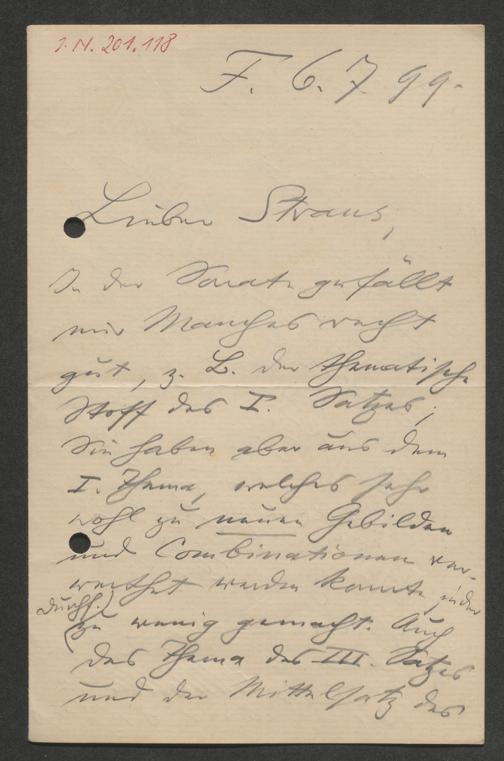 I. N. 201.118
F. 6. 7. 99.
Lieber Straus,
In der Sonate gefällt
mir Manches recht
gut, z. B. der thematische
Stoff des I. Satzes;
Sie haben aber aus dem
I. Thema, welches sehr
wohl zu neuen Gebilden
und Combinationen ver-
werthet werden konnte, in der
Durchf.)
(zu wenig gemacht. Auch
das Thema des III. Satzes
und der Mittelsatz des